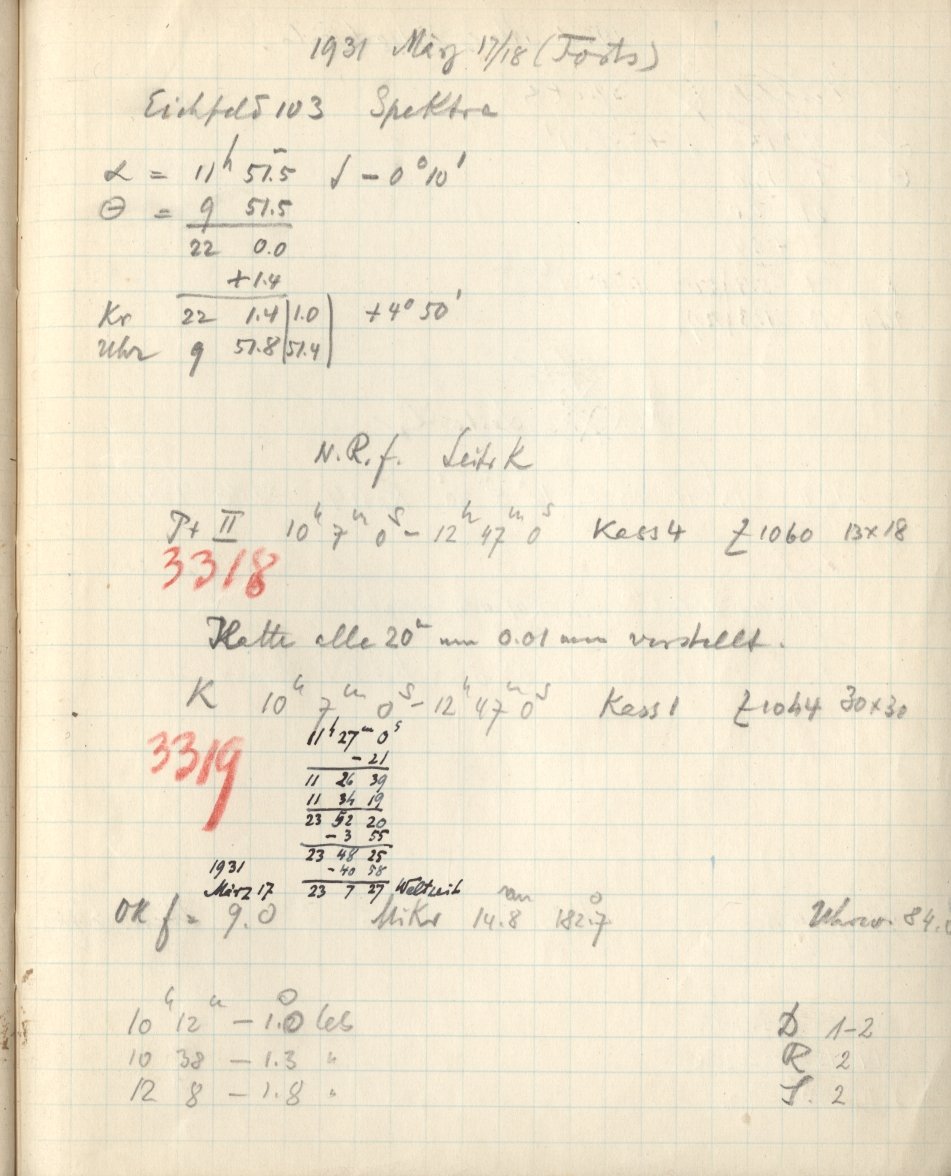 1931 März 17/18 (Forts)
Eichfeld 103 Spektra
α = 11ʰ 51.5 δ -0° 10'
θ = 9 51.5
22 0.0
+1.4
Kr 22 1.4 | 1.0 | +4° 50'
Uhr 9 51.8 | 51.4 |
N.R.f. Leitr K
Pt II 10ʰ 7ᵐ 0ˢ - 12ʰ 47ᵐ 0ˢ Kass 4 Z 1060 13x18
3318
Platte alle 20ᵐ um 0.01 mm verstellt.
K 10ʰ 7ᵐ 0ˢ - 12ʰ 47ᵐ 0ˢ Kass 1 Z 1044 30x30
3319
11ʰ 27ᵐ 0ˢ
- 21
11 26 39
11 34 19
23 52 20
- 3 55
23 48 25
1931 - 40 58
März 17 23 7 27 Weltzeit
OK f = 9.0 Mikr 14.8 182.7 84.
10ʰ 12ᵐ - 1.0 Cels
10 38 - 1.3 "
12 8 - 1.8 "
D 1-2
R 2
S. 2